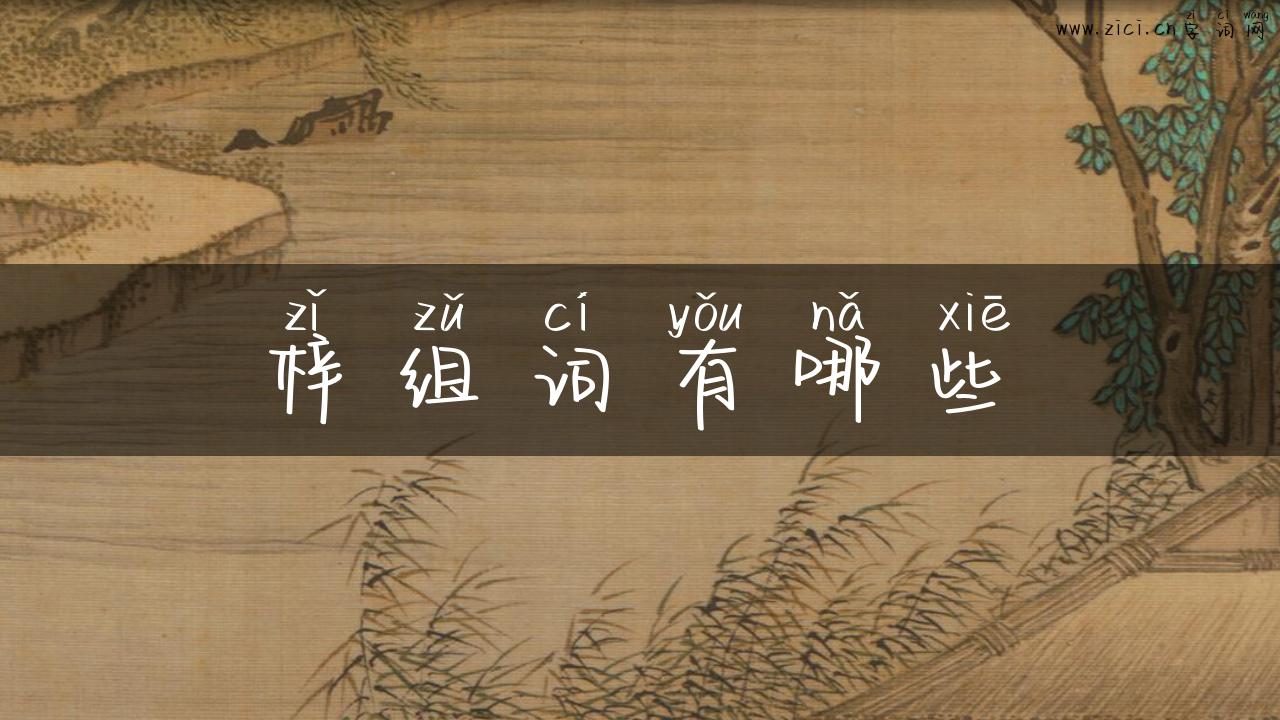 zì cí wǎng
www.zici.cn字词网
zǐ zǔ cí yǒu nǎ xiē
梓组词有哪些